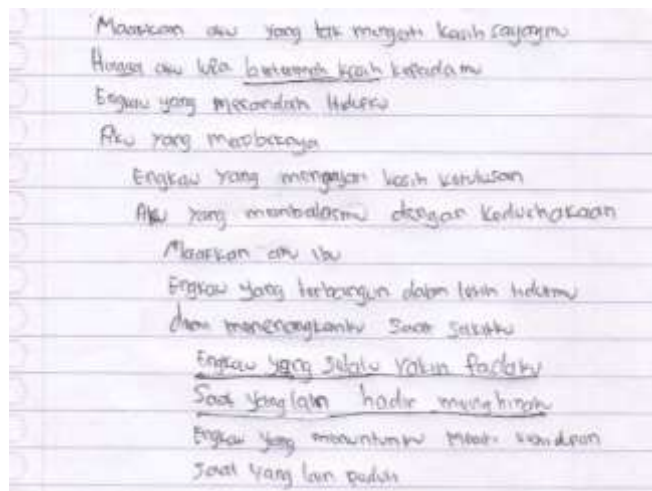 Maafkan aku yang tak mengerti kasih sayangmu
Hingga aku lupa berterimah kasih kepadamu
Engkau yang merendah hidupku
Aku yang
Engkau yang mengajari kasih ketulusan
Aku yang membalasmu dengan kedurhakaan
Maafkan aku ibu
Engkau yang terbangun dalam lelah tidurmu
menenangkanku saat sakitku
Engkau yang selalu yakin padaku
Saat yang lain hadir menghinaku
Engkau yang menuntunku kehidupan
Saat yang lain